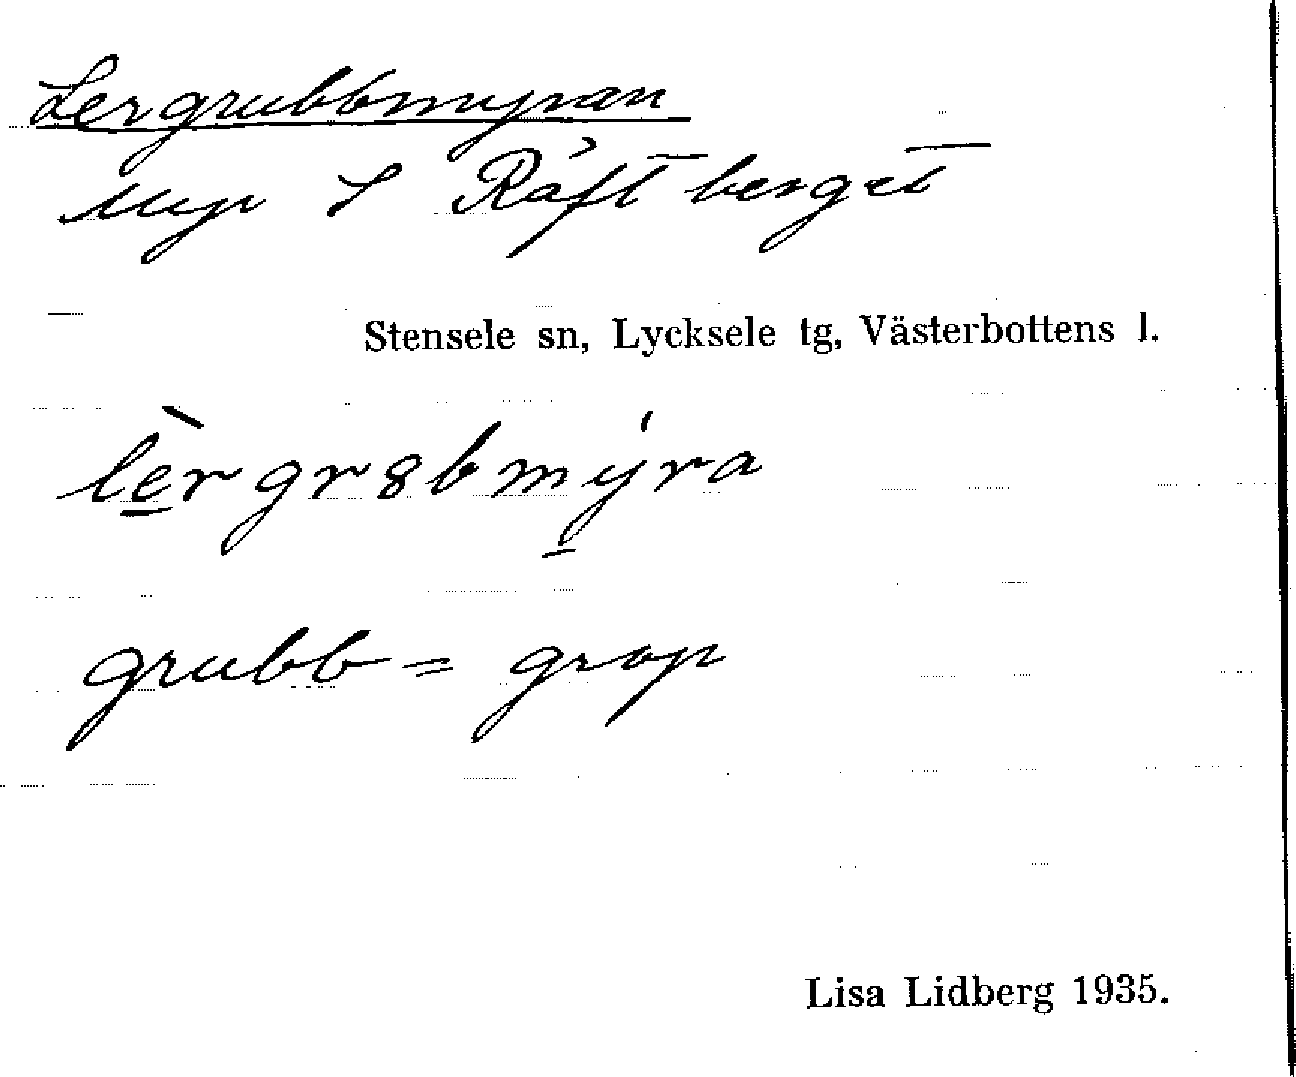 Lergrubbmyran
Myr S Råftberget
Stensele sn, Lycksele tg, Västerbottens l.
lèrgr8bmýra
grubb = grop
Lisa Lidberg 1935.